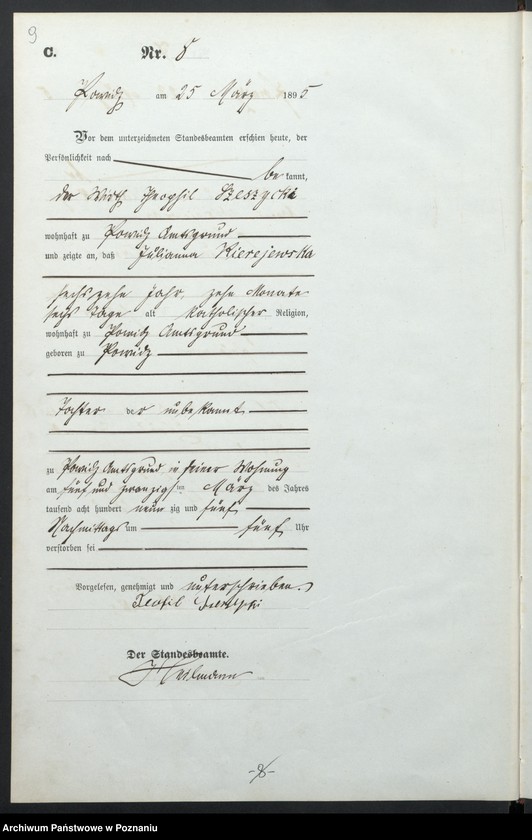 9
C. Nr. 8
Powidz am 25 März 1895
Vor dem unterzeichneten Standesbeamten erschien heute, der
Persönlichkeit nach
bekannt,
der Wirth Theophil Szeszycki
wohnhaft zu Powidz Amtsgrund
und zeigte an, daß Julianna Kierejewska
sechszehn Jahr, zehn Monate
sechs Tage alt katholischer Religion,
wohnhaft zu Powidz Amtsgrund
geboren zu Powidz
Tochter der unbekannt
zu Powidz Amtsgrund in seiner Wohnung
am fünf und zwanzigsten März des Jahres
tausend acht hundert neunzig und fünf
Nachmittags um fünf Uhr
verstorben sei
Vorgelesen, genehmigt und unterschrieben.
Teofil
Der Standesbeamte.
Heilmann
-8-
Archiwum Państwowe w Poznaniu